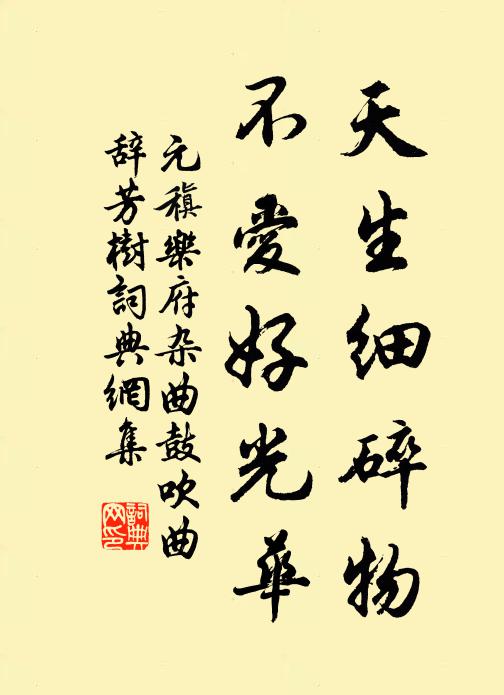 天生細碎物
不愛好光華
元稹樂府杂曲鼓吹曲
辞芳樹詞典網集
詞典
网印